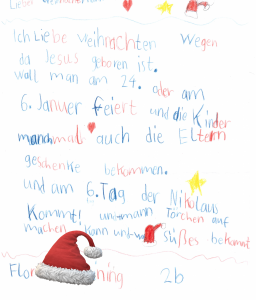 Ich Liebe weihnachten wegen
da Jesus geboren ist.
wall man am 24. oder am
6. Januer feiert und die Kinder
manchmal auch die Eltern
geschenke bekommen.
und am 6. Tag der Nikolaus
Kommt! und man Törchen auf
machen kann und süßes bekomt
Flor ning 2b